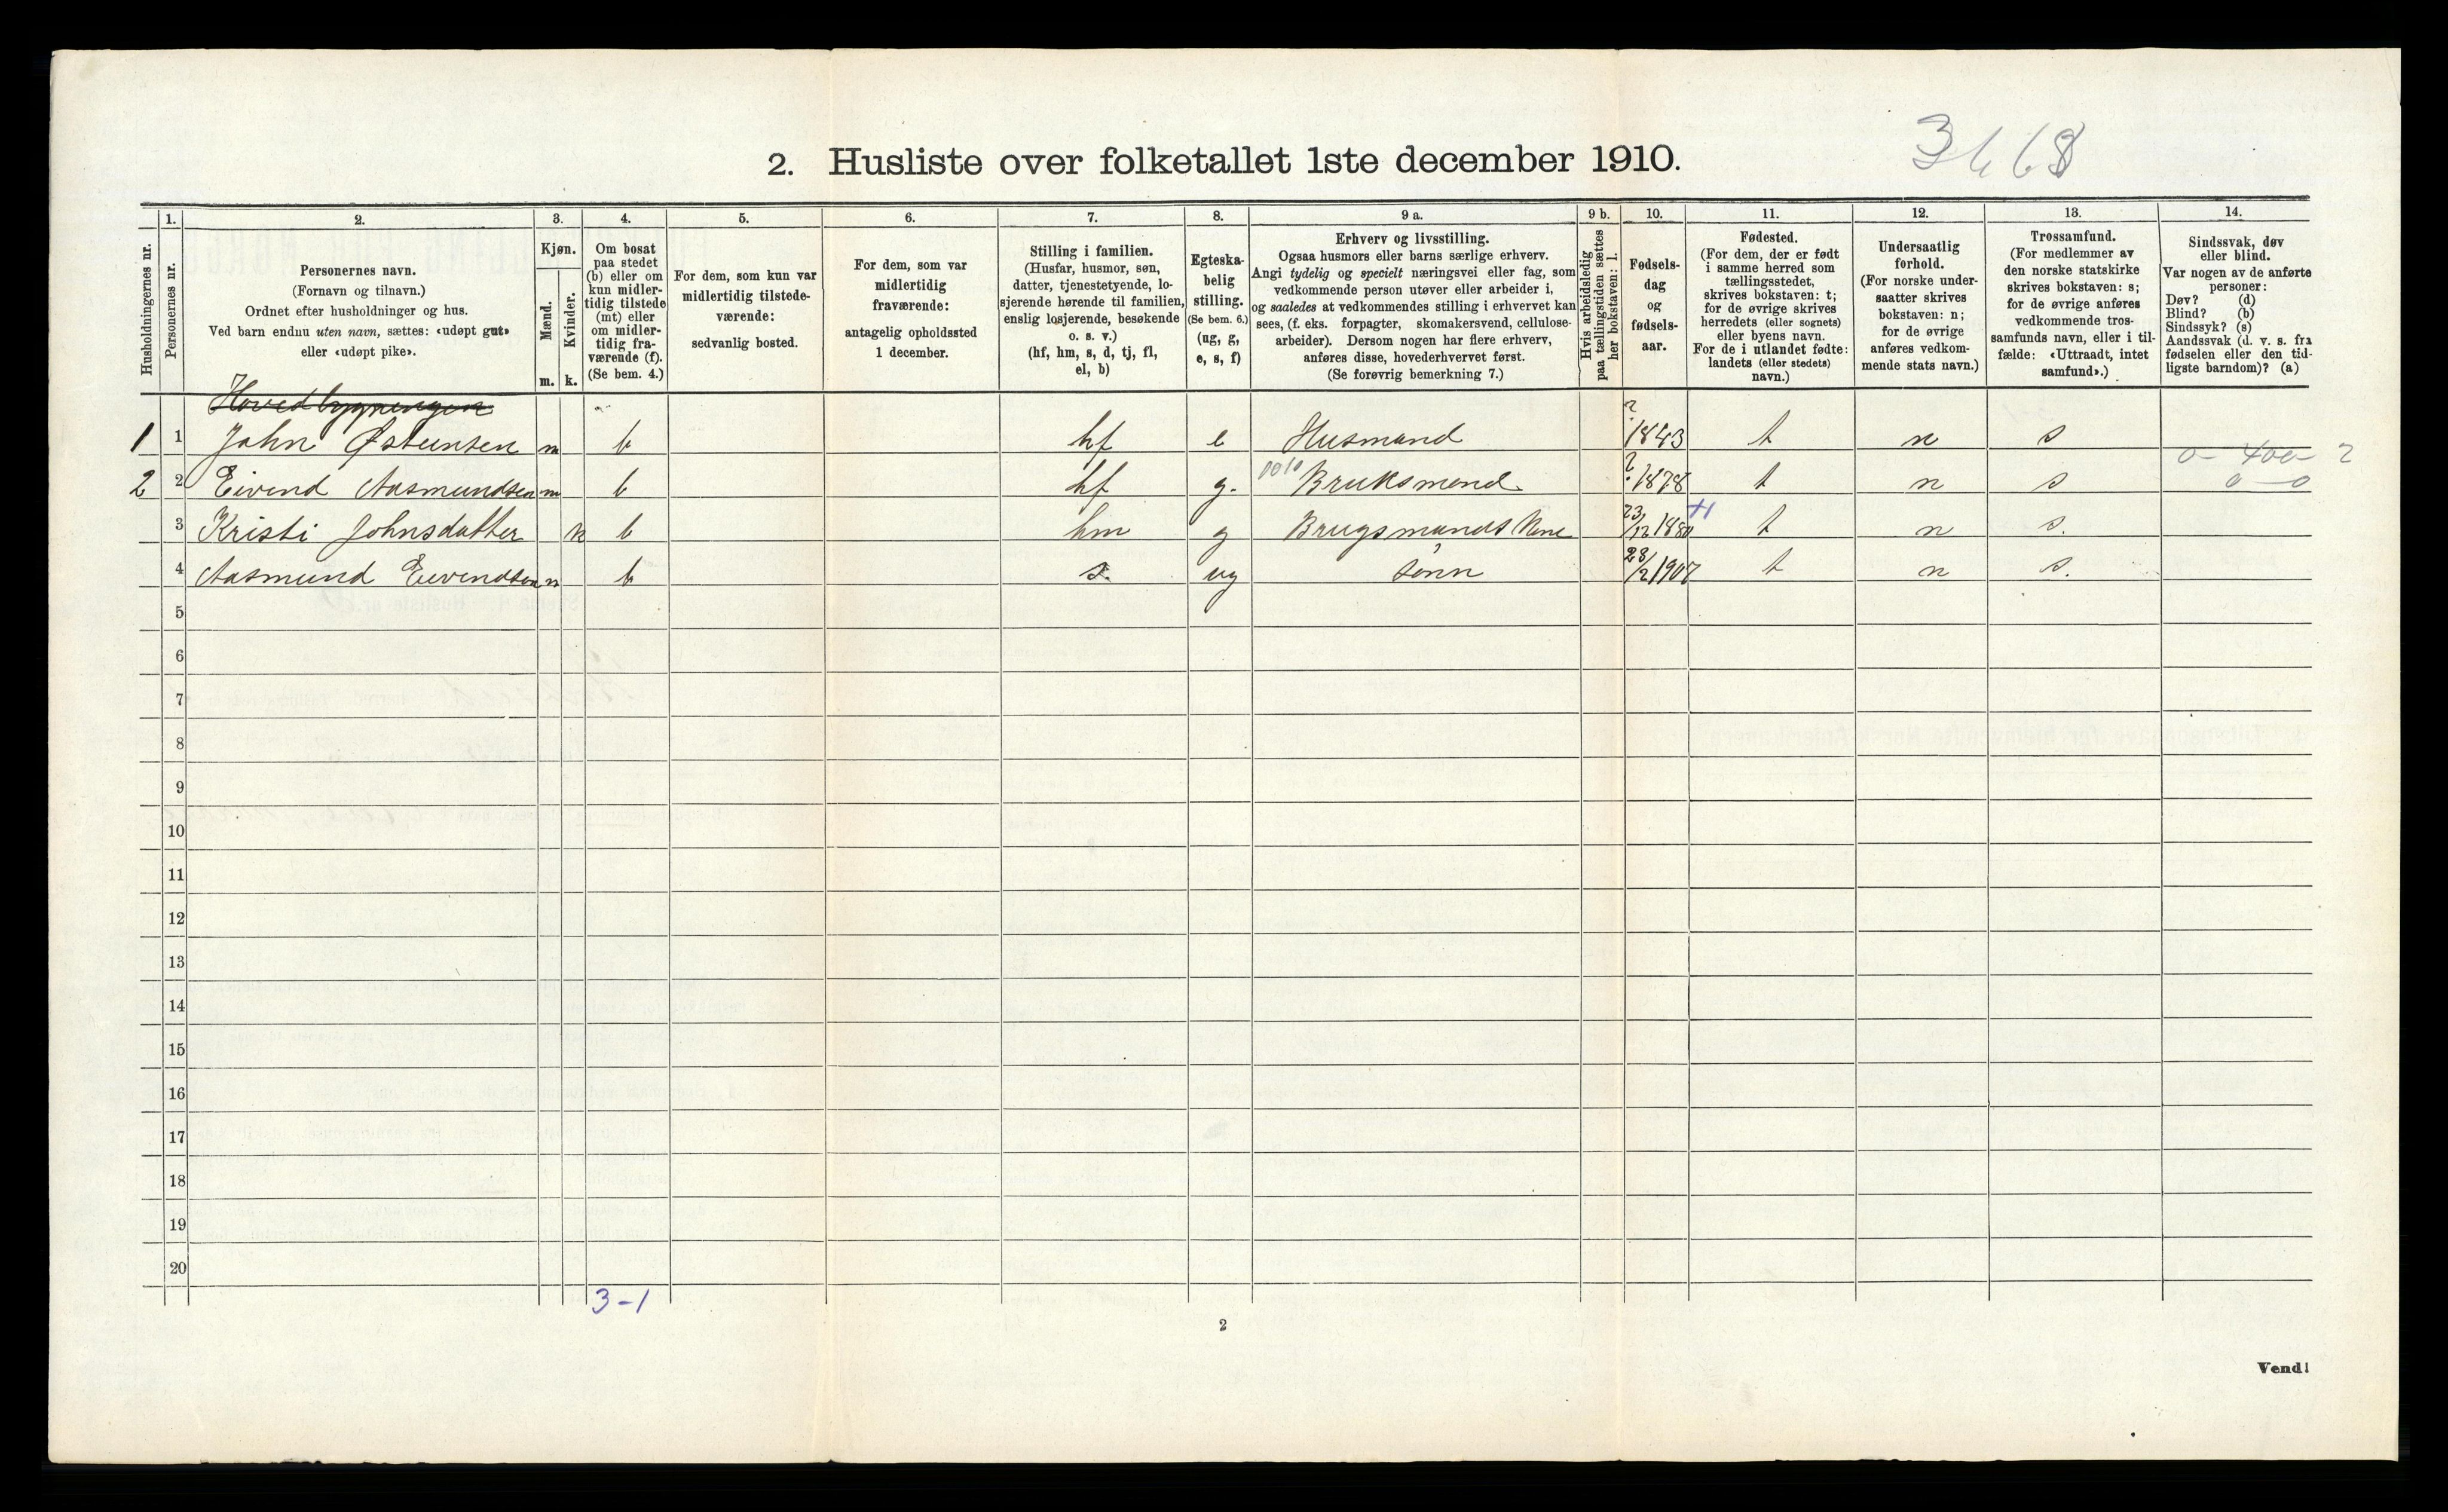 3668
2. Husliste over folketallet 1ste december 1910.
Husholdningernes nr.
1.
Personernes nr.
2.
Personernes navn.
(Fornavn og tilnavn.)
Ordnet efter husholdninger og hus.
Ved barn endnu uten navn, sættes: «udøpt gut»
eller «udøpt pike».
3.
Kjøn.
Mænd.
Kvinder.
m. k.
4.
Om bosat
paa stedet
(b) eller om
kun midler-
tidig tilstede
(mt) eller
om midler-
tidig fra-
værende (f).
(Se bem. 4.)
5.
For dem, som kun var
midlertidig tilstede-
værende:
sedvanlig bosted.
6.
For dem, som var
midlertidig
fraværende:
antagelig opholdssted
1 december.
7.
Stilling i familien.
(Husfar, husmor, søn,
datter, tjenestetyende, lo-
sjerende hørende til familien,
enslig losjerende, besøkende
o. s. v.)
(hf, hm, s, d, tj, fl,
el, b)
8.
Egteska-
belig
stilling.
(Se bem. 6.)
(ug, g,
e, s, f)
9 a.
Erhverv og livsstilling.
Ogsaa husmors eller barns særlige erhverv.
Angi tydelig og specielt næringsvei eller fag, som
vedkommende person utøver eller arbeider i,
og saaledes at vedkommendes stilling i erhvervet kan
sees, (f. eks. forpagter, skomakersvend, cellulose-
arbeider). Dersom nogen har flere erhverv,
anføres disse, hovederhvervet først.
(Se forøvrig bemerkning 7.)
9 b.
Hvis arbeidsledig
paa tællingstiden sættes
her bokstaven: l.
10.
Fødsels-
dag
og
fødsels-
aar.
11.
Fødested.
(For dem, der er født
i samme herred som
tællingsstedet,
skrives bokstaven: t;
for de øvrige skrives
herredets (eller sognets)
eller byens navn.
For de i utlandet fødte:
landets (eller stedets)
navn.)
12.
Undersaatlig
forhold.
(For norske under-
saatter skrives
bokstaven: n;
for de øvrige
anføres vedkom-
mende stats navn.)
13.
Trossamfund.
(For medlemmer av
den norske statskirke
skrives bokstaven: s;
for de øvrige anføres
vedkommende tros-
samfunds navn, eller i til-
fælde: «Uttraadt, intet
samfund».)
14.
Sindssvak, døv
eller blind.
Var nogen av de anførte
personer:
Døv? (d)
Blind? (b)
Sindssyk? (s)
Aandssvak (d. v. s. fra
fødselen eller den tid-
ligste barndom)? (a)
Hovedbygningen
1 1 John Østensen m b hf e Husmand ? 1843 t n s
0 - 400 - 2
2 2 Eivend Aasmundsen m b hf g. Bruksmand ? 1878 t n s 0 - 0
3 Kristi Johnsdatter k b hm g Brugsmands Kone 23/12 1880 t n s.
4 Aasmund Eivendsen m b s. ug Sønn 28/2 1907 t n s.
5
6
7
8
9
10
11
12
13
14
15
16
17
18
19
20
3-1
2
Vend!